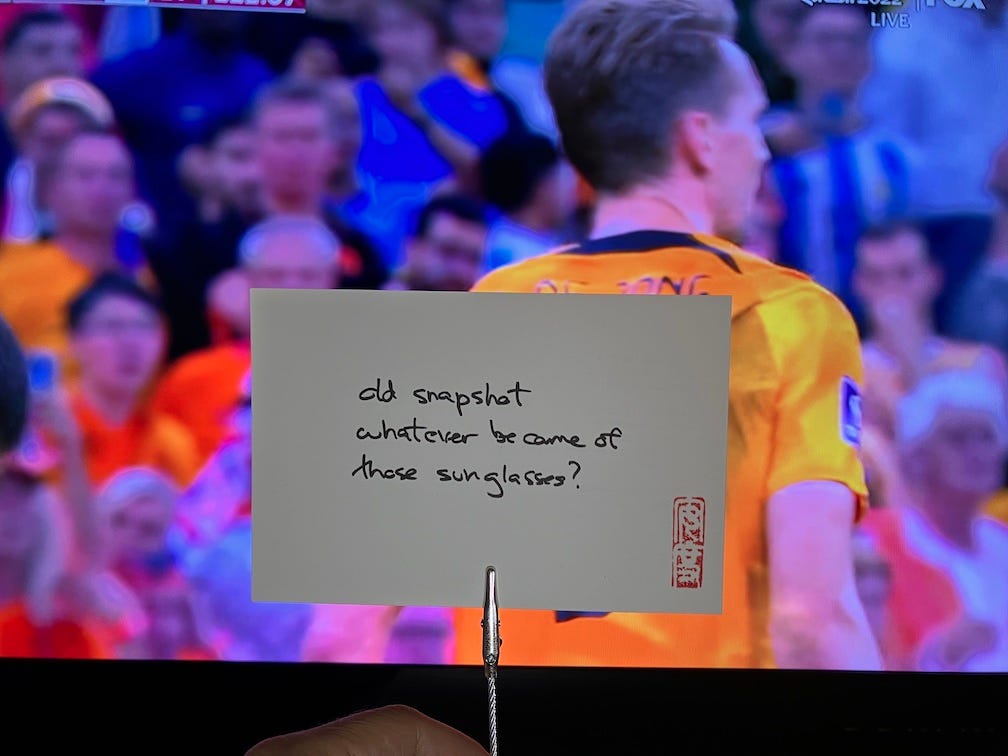 Qatar2022
FOX
LIVE
DE JONG
old snapshot
whatever became of
those sunglasses?